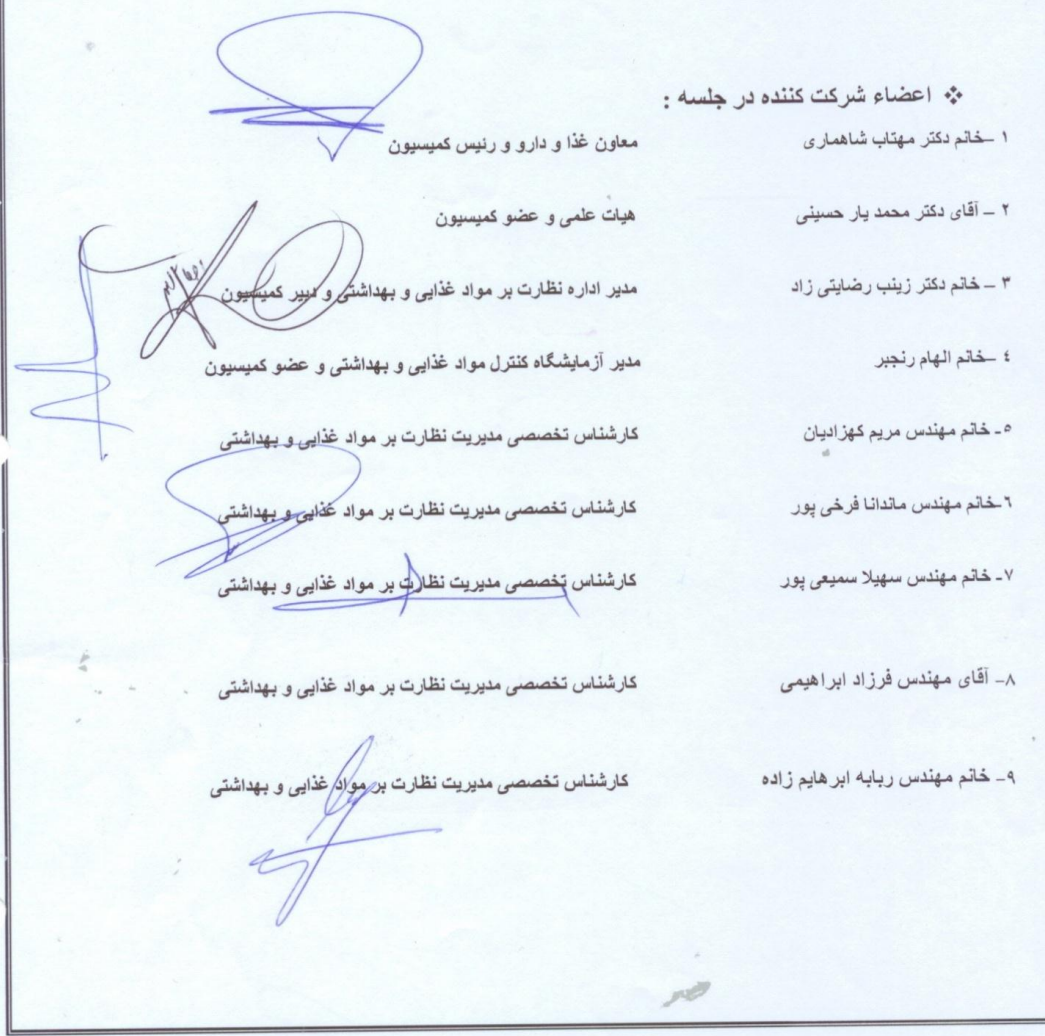 ❖ اعضاء شرکت کننده در جلسه :
۱ –خانم دکتر مهتاب شاهماری معاون غذا و دارو و رئیس کمیسیون
۲ – آقای دکتر محمد یار حسینی هیات علمی و عضو کمیسیون
۳ – خانم دکتر زینب رضایتی زاد مدیر اداره نظارت بر مواد غذایی و بهداشتی و دبیر کمیسیون
٤ –خانم الهام رنجبر مدیر آزمایشگاه کنترل مواد غذایی و بهداشتی و عضو کمیسیون
٥- خانم مهندس مریم کهزادیان کارشناس تخصصی مدیریت نظارت بر مواد غذایی و بهداشتی
٦-خانم مهندس ماندانا فرخی پور کارشناس تخصصی مدیریت نظارت بر مواد غذایی و بهداشتی
۷- خانم مهندس سهیلا سمیعی پور کارشناس تخصصی مدیریت نظارت بر مواد غذایی و بهداشتی
۸– آقای مهندس فرزاد ابراهیمی کارشناس تخصصی مدیریت نظارت بر مواد غذایی و بهداشتی
۹– خانم مهندس ربابه ابرهایم زاده کارشناس تخصصی مدیریت نظارت بر مواد غذایی و بهداشتی